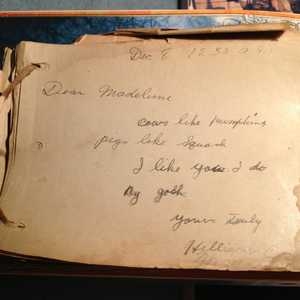 Dec 6 12:30 a
Dear Madeline
cows like pumpkins
pigs like squash
I like you I do
by gosh
yours truly